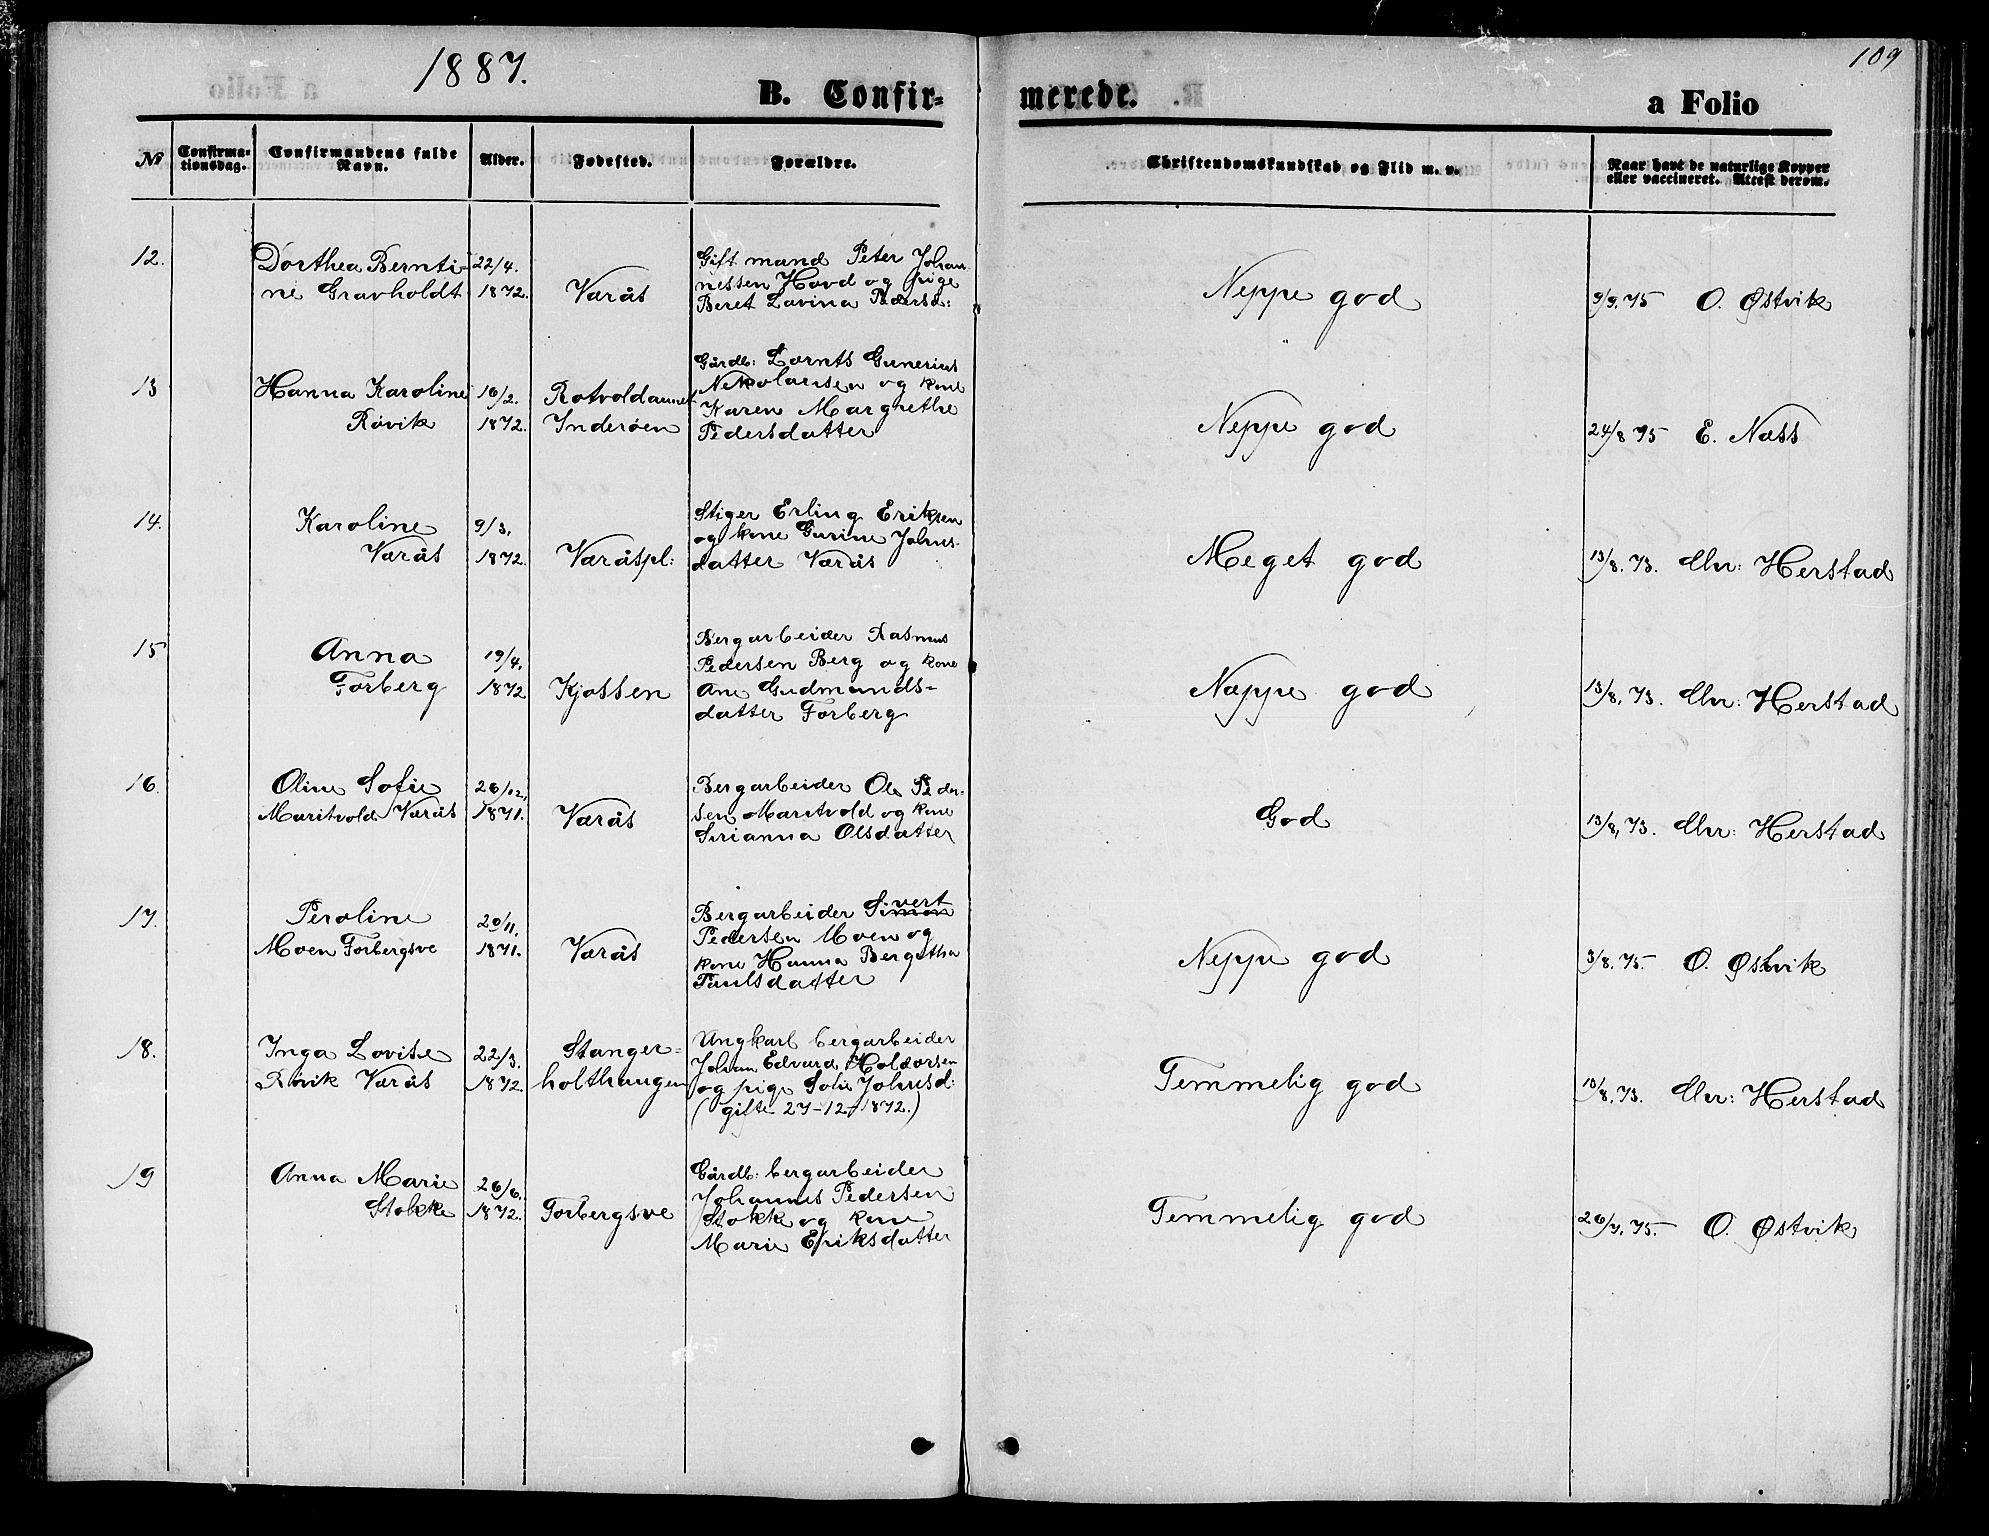 1887.
109
B. Confir=
merede.
a Folio
No
Confirma=
tionsdag.
Confirmandens fulde
Navn.
Alder.
Fødested.
Forældre.
Christendomskundskab og Flid m. v.
Naar havt de naturlige Kopper
eller vaccineret. Attest derom.
12.
Dorthea Bernti-
ne Gravholdt
22/4.
1872.
Værås
Gift mand Peter Johan
nessen Hovd og pige
Beret Lovina Pedersd:
Neppe god
9/9. 75 O. Østvik
13
Hanna Karoline
Røvik
16/2.
1872.
Rotvoldaunet
Inderøen
Gårdb: Lornts Gunerius
Nikolaisen og kone
Karen Margrethe
Pedersdatter
Neppe god
24/8 75 E. Næss
14.
Karoline
Værås
9/3.
1872.
Væråspl:
Stiger Erling Eriksen
og kone Gurine Johns-
datter Værås
Meget god
13/8. 73. Chr: Herstad
15
Anna
Forberg
19/4.
1872
Kjossen
Bergarbeider Rasmus
Pedersen Berg og kone
Ane Gudmunds-
datter Forberg
Neppe god
13/8. 73. Chr: Herstad
16.
Oline Sofie
Maritvold Værås
26/12.
1871.
Værås
Bergarbeider Ole Peder-
sen Maritvold og kone
Sirianna Olsdatter
God
13/8. 73. Chr: Herstad
17.
Peroline
Moen Forbergsve
20/11.
1871.
Værås
Bergarbeider Simon Sivert
Pedersen Moen og
kone Hanna Bergitha
Paulsdatter
Neppe god
3/8. 75. O. Østvik
18.
Inga Lovise
Røvik Værås
22/3.
1872.
Stanger=
holthaugen
Ungkarl bergarbeider
Johan Edvard Holdorsen
og pige Sofie Johnsd:
(gifte 27-12-1872.)
Temmelig god
13/8. 73. Chr: Herstad
19
Anna Marie
Stokke
26/6.
1872.
Forbergsve
Gårdb: bergarbeider
Johannes Pedersen
Stokke og kone
Marie Eriksdatter
Temmelig god
26/9. 75. O. Østvik